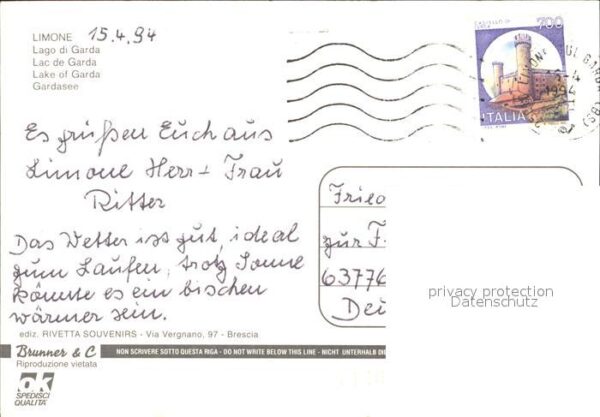 LIMONE 15.4.94
Lago di Garda
Lac de Garda
Lake of Garda
Gardasee
CASTELLO DI
IVREA
700
ITALIA
1994
Es grüßen Euch aus
Limone Herr + Frau
Ritter
Das Wetter ist gut, ideal
zum Laufen, trotz Sonne
könnte es ein bischen
wärmer sein.
Fried
zur F
63776
Deu
privacy protection
Datenschutz
ediz. RIVETTA SOUVENIRS - Via Vergnano, 97 - Brescia
Brunner & C
NON SCRIVERE SOTTO QUESTA RIGA - DO NOT WRITE BELOW THIS LINE - NICHT UNTERHALB DIE
Riproduzione vietata
ok
SPEDISCI
QUALITÀ